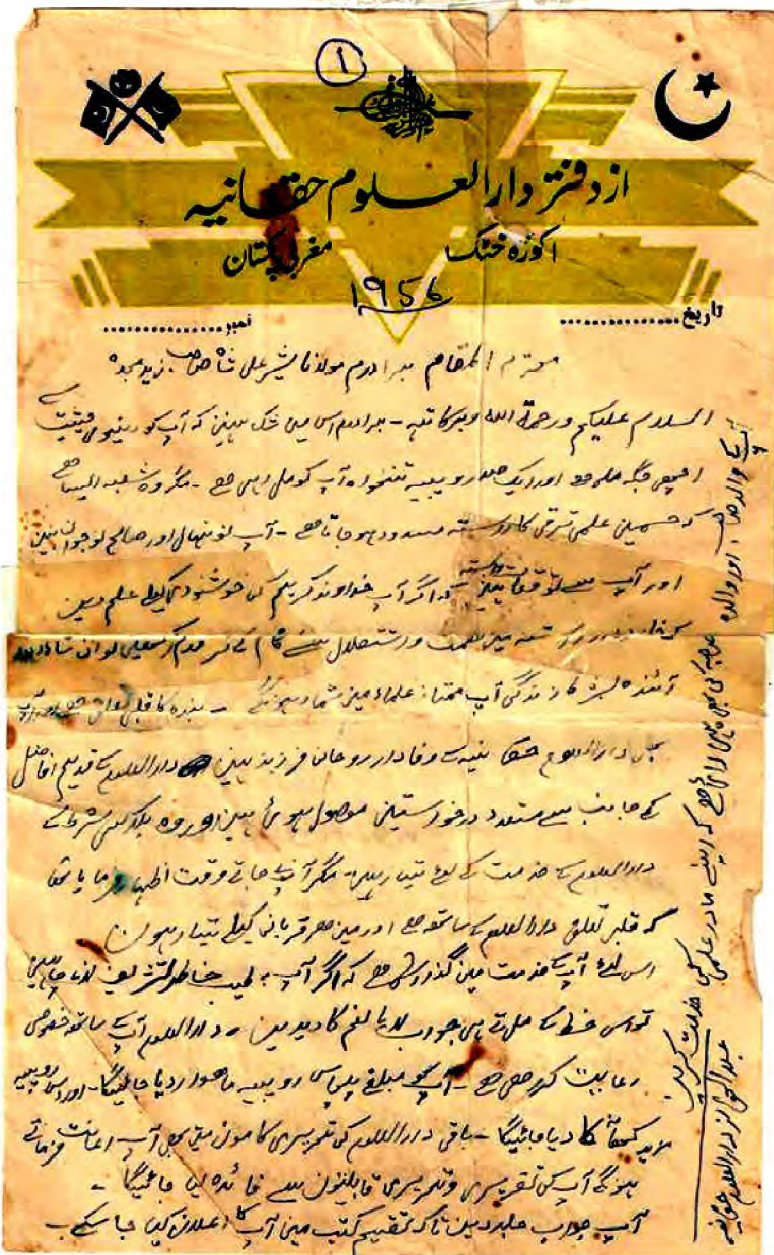 ۱
از دفتر دارالعلوم حقانیہ
اکوڑہ خٹک مغربی پاکستان
۱۹۵۶
تاریخ ............... نمبر ...............
محترم المقام برادرم مولانا شیر علی شاہ صاحب زید مجدہ
السلام علیکم ورحمۃ اللہ وبرکاتہ - برادرم اس میں شک نہیں کہ آپ کو دنیوی حیثیت سے
اچھی جگہ ملی ہے اور ایک صد روپیہ تنخواہ آپ کو مل رہی ہے - مگر وہ شعبہ ایسا ہے
کہ جسمیں علمی ترقی کا راستہ مسدود ہو جاتا ہے - آپ نونہال اور صالح نوجوان ہیں
اور آپ سے توقعات وابستہ ہیں کہ اگر آپ خداوند کریم کی خوشنودی کیلئے علم دین
آئندہ آپ ممتاز علماء میں شمار ہونگے - بندہ کا قلبی
دارالعلوم حقانیہ کے وفادار روحانی فرزند ہیں دارالعلوم کے قدیم افاضل
کے جانب سے متعدد درخواستیں موصول ہوئی ہیں اور وہ بلا کسی شرط کے
دارالعلوم کے خدمت کے لئے تیار ہیں، مگر آپ نے جاتے وقت اظہار فرمایا تھا
کہ قلبی تعلق دارالعلوم کے ساتھ ہے اور میں ہر قربانی کیلئے تیار ہوں
اس لئے آپ کے خدمت میں گذارش ہے کہ اگر آپ بطیب خاطر تشریف لانا چاہیں
تو اس خط کے ملتے ہی جواب دیدیں - دارالعلوم آپ کے ساتھ خصوصی
رعایت کر رہی ہے - آپ کو مبلغ پچاس روپیہ ماہوار دیا جائیگا - اور دس روپیہ
کا دیا جائیگا - باقی دارالعلوم کی تدریسی کاموں میں بھی آپ اعانت فرماتے
ہونگے آپ کی تقریری و تحریری قابلیتوں سے فائدہ لیا جائیگا -
آپ جواب جلد دیں تاکہ تقسیم کتب میں آپ کا اعلان کیا جا سکے
آپ کے والد صاحب اور والدہ کی بھی یہی رائے ہے کہ اپنے مادر علمی
کی خدمت کریں
عبدالحق از دارالعلوم حقانیہ